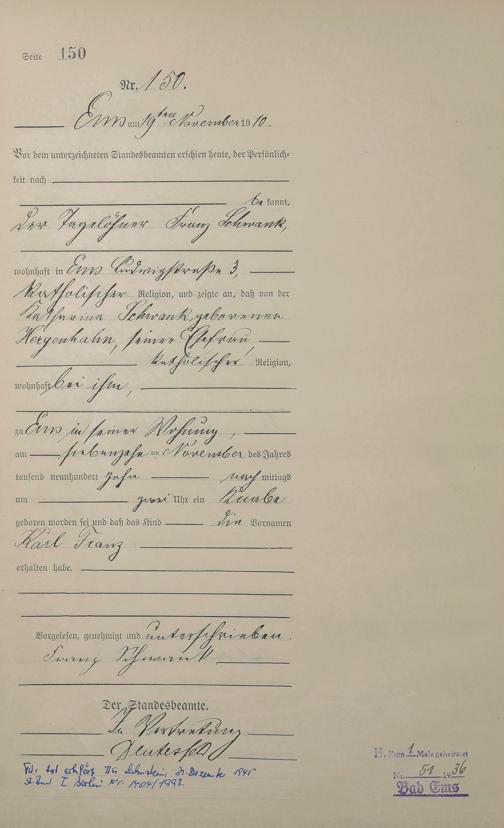 Seite 150
Nr. 150.
Ems am 19ten November 1910.
Vor dem unterzeichneten Standesbeamten erschien heute, der Persönlich-
keit nach
be kannt,
der Tagelöhner Franz Schwank,
wohnhaft in Ems Ludwigstraße 3,
katholischer Religion, und zeigte an, daß von der
Katharina Schwank geborenen
Hergenhahn, seiner Ehefrau,
katholischer Religion,
wohnhaft bei ihm,
zu Ems in seiner Wohnung,
am siebenzehn ten November des Jahres
tausend neunhundert zehn nach mittags
um zwei Uhr ein Knabe
geboren worden sei und daß das Kind die Vornamen
Karl Franz
erhalten habe.
Vorgelesen, genehmigt und unterschrieben.
Franz Schwank
Der Standesbeamte.
In Vertretung
Für tot erklärt Lahnstein, 31. Dezember 1945
St. Amt I Berlin Nr. 1993.
H. Zum 1 Male geheiratet
Nr. 51 1936
Bad Ems